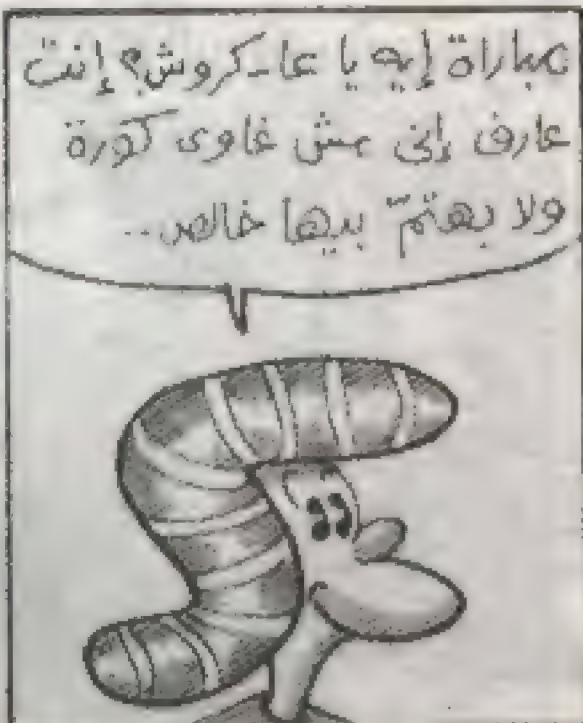 مباراة إيه يا عا-كروش؟ إنت
عارف إنى مش غاوى كورة
ولا بهتمّ بيها خالص..